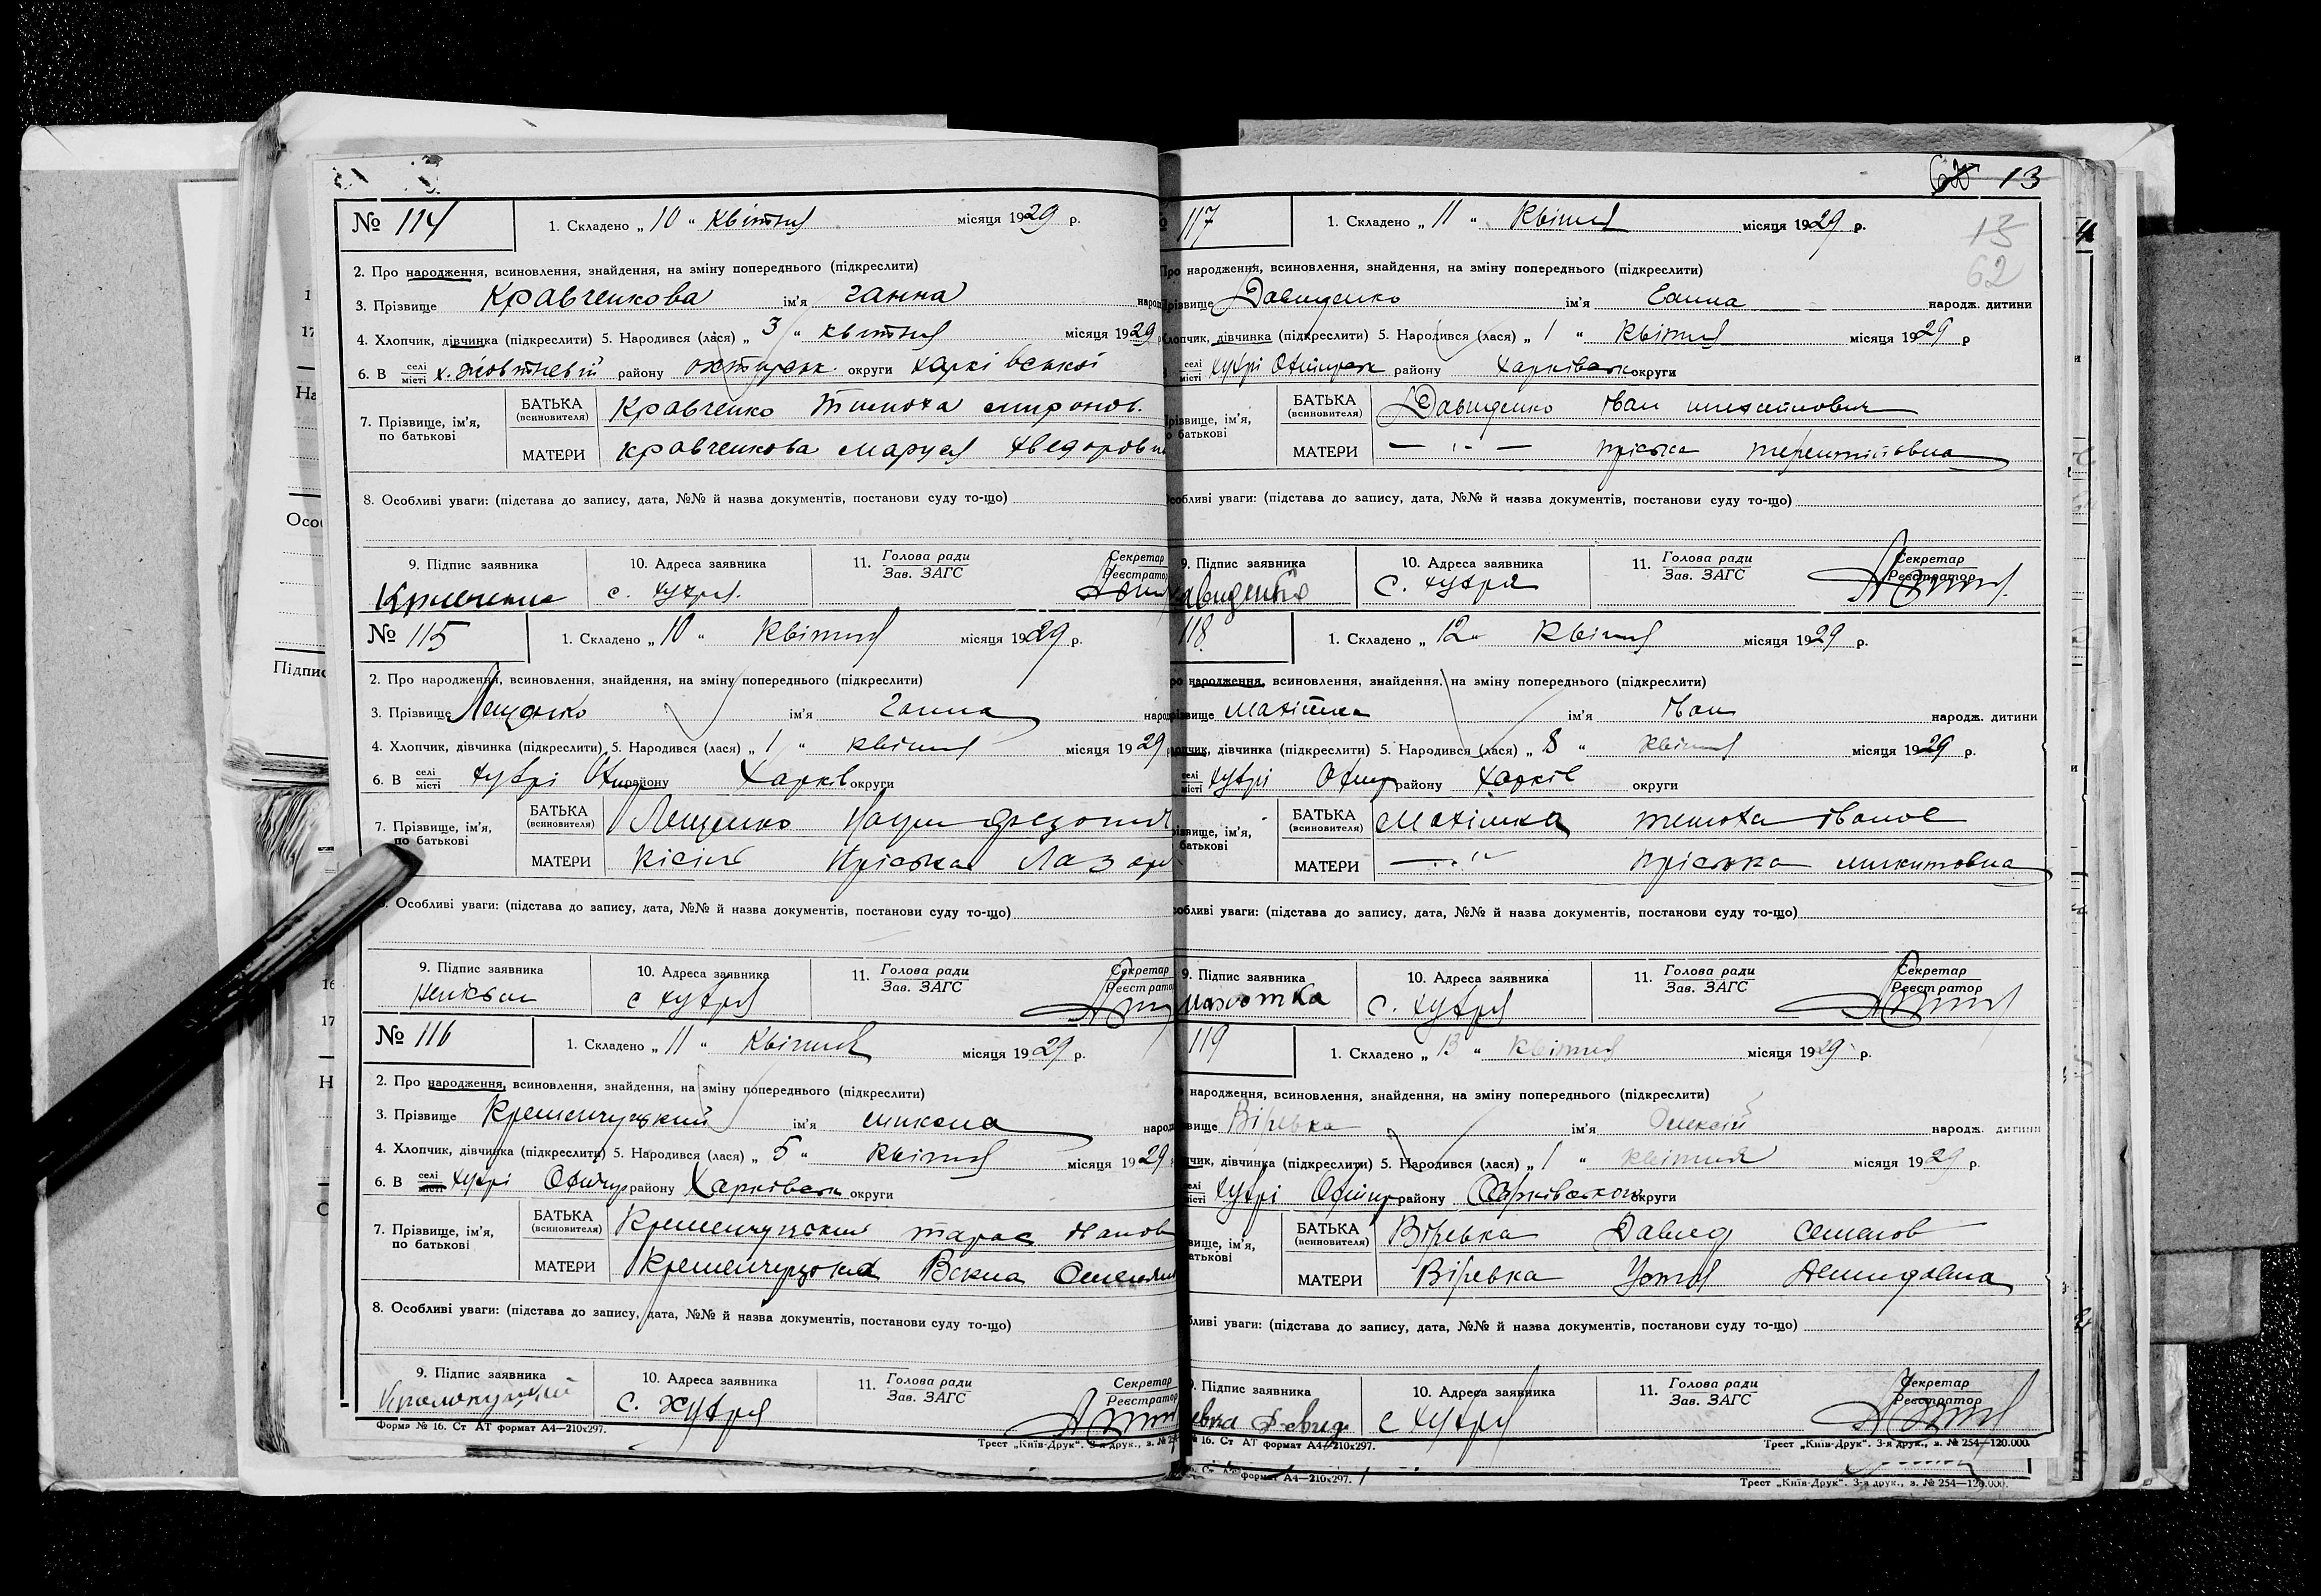 № 114 1. Складено „ 10 “ квітня місяця 1929 р.
2. Про народження, всиновлення, знайдення, на зміну попереднього (підкреслити)
3. Прізвище Кравченкова ім'я Ганна народ
4. Хлопчик, дівчинка (підкреслити) 5. Народився (лася) „ 3 “ квітня місяця 1929 р
6. В селі місті х. Жовтневій району округи Харківської
7. Прізвище, ім'я, по батькові
БАТЬКА (всиновителя) Кравченко Тимоха Миронов.
МАТЕРИ Кравченкова Маруся
8. Особливі уваги: (підстава до запису, дата, №№ й назва документів, постанови суду то-що)
9. Підпис заявника 10. Адреса заявника 11. Голова ради Зав. ЗАГС Секретар Реєстратор
с. Хухря
№ 115 1. Складено „ 10 “ Квітня місяця 1929 р.
2. Про народження, всиновлення, знайдення, на зміну попереднього (підкреслити)
3. Прізвище Лещенко ім'я Ганна народ
4. Хлопчик, дівчинка (підкреслити) 5. Народився (лася) „ 1 “ квітня місяця 1929
6. В селі місті Хухрі Охтир району Харків округи
7. Прізвище, ім'я, по батькові
БАТЬКА (всиновителя) Лещенко
МАТЕРИ Кісіль Пріська Лазар
8. Особливі уваги: (підстава до запису, дата, №№ й назва документів, постанови суду то-що)
9. Підпис заявника 10. Адреса заявника 11. Голова ради Зав. ЗАГС Секретар Реєстратор
с Хухря
№ 116 1. Складено „ 11 “ Квітня місяця 1929 р.
2. Про народження, всиновлення, знайдення, на зміну попереднього (підкреслити)
3. Прізвище Кременчуцький ім'я Микола народ
4. Хлопчик, дівчинка (підкреслити) 5. Народився (лася) „ 5 “ Квітня місяця 1929
6. В селі місті Хухрі Охтир району Харківськ округи
7. Прізвище, ім'я, по батькові
БАТЬКА (всиновителя) Кременчуцький Тарас
МАТЕРИ Кременчуцька
8. Особливі уваги: (підстава до запису, дата, №№ й назва документів, постанови суду то-що)
9. Підпис заявника 10. Адреса заявника 11. Голова ради Зав. ЗАГС Секретар Реєстратор
с. Хухря
Форма № 16. Ст АТ формат А4—210х297. Трест „Київ-Друк“. 3-я друк., з. №
13
13
62
117 1. Складено „ 11 “ Квітня місяця 1929 р.
народження, всиновлення, знайдення, на зміну попереднього (підкреслити)
Давиденко ім'я Ганна народж. дитини
дівчинка (підкреслити) 5. Народився (лася) „ 1 “ Квітня місяця 1929 р
селі місті Хухрі Охтирськ району Харківськ округи
БАТЬКА (всиновителя) Давиденко Іван
МАТЕРИ — „ — Пріська Терентіївна
уваги: (підстава до запису, дата, №№ й назва документів, постанови суду то-що)
9. Підпис заявника 10. Адреса заявника 11. Голова ради Зав. ЗАГС Секретар Реєстратор
с. Хухря
118 1. Складено „ 12 “ Квітня місяця 1929 р.
народження, всиновлення, знайдення, на зміну попереднього (підкреслити)
ім'я Іван народж. дитини
дівчинка (підкреслити) 5. Народився (лася) „ 8 “ Квітня місяця 1929 р.
селі місті Хухрі Охтир району Харків округи
БАТЬКА (всиновителя) Тимоха Іванов
МАТЕРИ — „ Пріська Микитовна
уваги: (підстава до запису, дата, №№ й назва документів, постанови суду то-що)
9. Підпис заявника 10. Адреса заявника 11. Голова ради Зав. ЗАГС Секретар Реєстратор
с. Хухря
119 1. Складено „ 13 “ Квітня місяця 1929 р.
народження, всиновлення, знайдення, на зміну попереднього (підкреслити)
Вірьовка ім'я Олексій народж. дитини
дівчинка (підкреслити) 5. Народився (лася) „ 1 “ квітня місяця 1929 р.
селі місті Хухрі Охтир району Харківської округи
БАТЬКА (всиновителя) Вірьовка Давид Семенов
МАТЕРИ Вірьовка Устя Демидовна
уваги: (підстава до запису, дата, №№ й назва документів, постанови суду то-що)
Підпис заявника 10. Адреса заявника 11. Голова ради Зав. ЗАГС Секретар Реєстратор
с Хухря
16. Ст АТ формат А4—210х297. Трест „Київ-Друк“. 3-я друк., з. № 254—120.000.
формат А4—210х297. Трест „Київ-Друк“. 3-я друк., з. № 254—120.000.